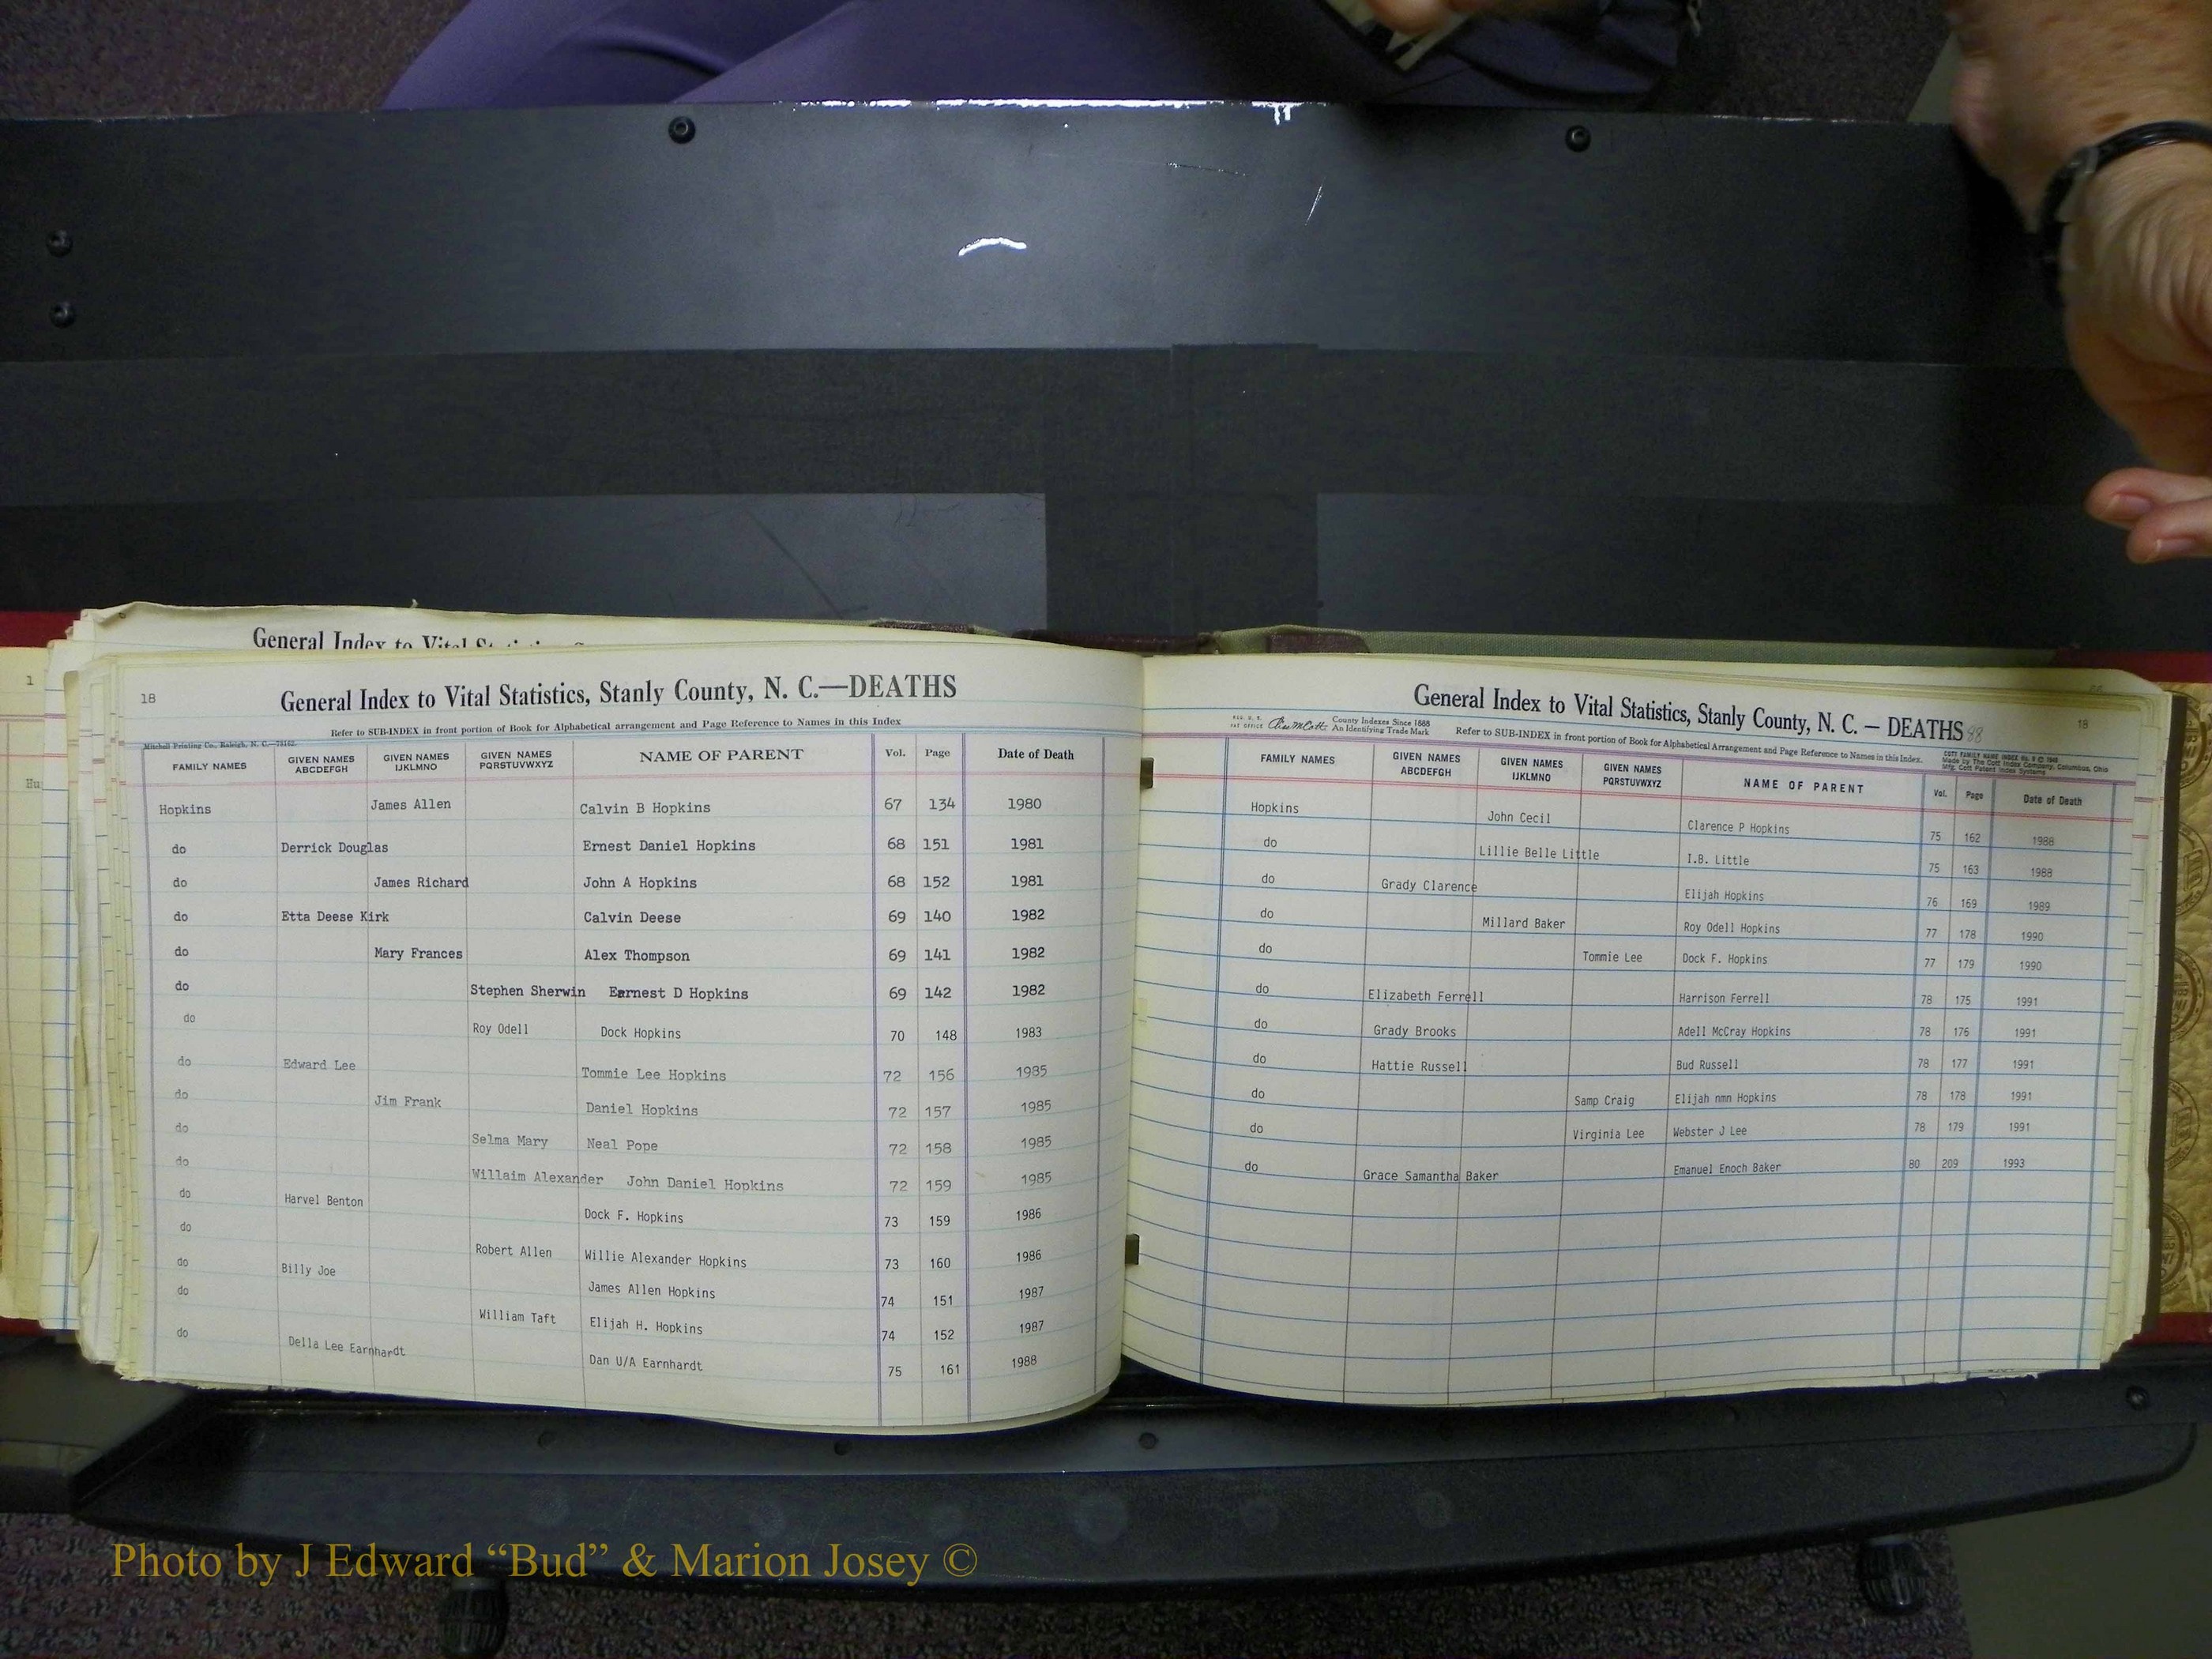 General Index to Vital Statistics
1
Hu
18
General Index to Vital Statistics, Stanly County, N. C.—DEATHS
Refer to SUB-INDEX in front portion of Book for Alphabetical arrangement and Page Reference to Names in this Index
Mitchell Printing Co., Raleigh, N. C.
FAMILY NAMES GIVEN NAMES ABCDEFGH GIVEN NAMES IJKLMNO GIVEN NAMES PQRSTUVWXYZ NAME OF PARENT Vol. Page Date of Death
Hopkins James Allen Calvin B Hopkins 67 134 1980
do Derrick Douglas Ernest Daniel Hopkins 68 151 1981
do James Richard John A Hopkins 68 152 1981
do Etta Deese Kirk Calvin Deese 69 140 1982
do Mary Frances Alex Thompson 69 141 1982
do Stephen Sherwin Earnest D Hopkins 69 142 1982
do Roy Odell Dock Hopkins 70 148 1983
do Edward Lee Tommie Lee Hopkins 72 156 1985
do Jim Frank Daniel Hopkins 72 157 1985
do Selma Mary Neal Pope 72 158 1985
do Willaim Alexander John Daniel Hopkins 72 159 1985
do Harvel Benton Dock F. Hopkins 73 159 1986
do Robert Allen Willie Alexander Hopkins 73 160 1986
do Billy Joe James Allen Hopkins 74 151 1987
do William Taft Elijah H. Hopkins 74 152 1987
do Della Lee Earnhardt Dan U/A Earnhardt 75 161 1988
General Index to Vital Statistics, Stanly County, N. C. — DEATHS 88
18
County Indexes Since 1888
An Identifying Trade Mark
Refer to SUB-INDEX in front portion of Book for Alphabetical Arrangement and Page Reference to Names in this Index.
Made by The Cott Index Company, Columbus, Ohio
FAMILY NAMES GIVEN NAMES ABCDEFGH GIVEN NAMES IJKLMNO GIVEN NAMES PQRSTUVWXYZ NAME OF PARENT Vol. Page Date of Death
Hopkins John Cecil Clarence P Hopkins 75 162 1988
do Lillie Belle Little I.B. Little 75 163 1988
do Grady Clarence Elijah Hopkins 76 169 1989
do Millard Baker Roy Odell Hopkins 77 178 1990
do Tommie Lee Dock F. Hopkins 77 179 1990
do Elizabeth Ferrell Harrison Ferrell 78 175 1991
do Grady Brooks Adell McCray Hopkins 78 176 1991
do Hattie Russell Bud Russell 78 177 1991
do Samp Craig Elijah nmn Hopkins 78 178 1991
do Virginia Lee Webster J Lee 78 179 1991
do Grace Samantha Baker Emanuel Enoch Baker 80 209 1993
Photo by J Edward “Bud” & Marion Josey ©